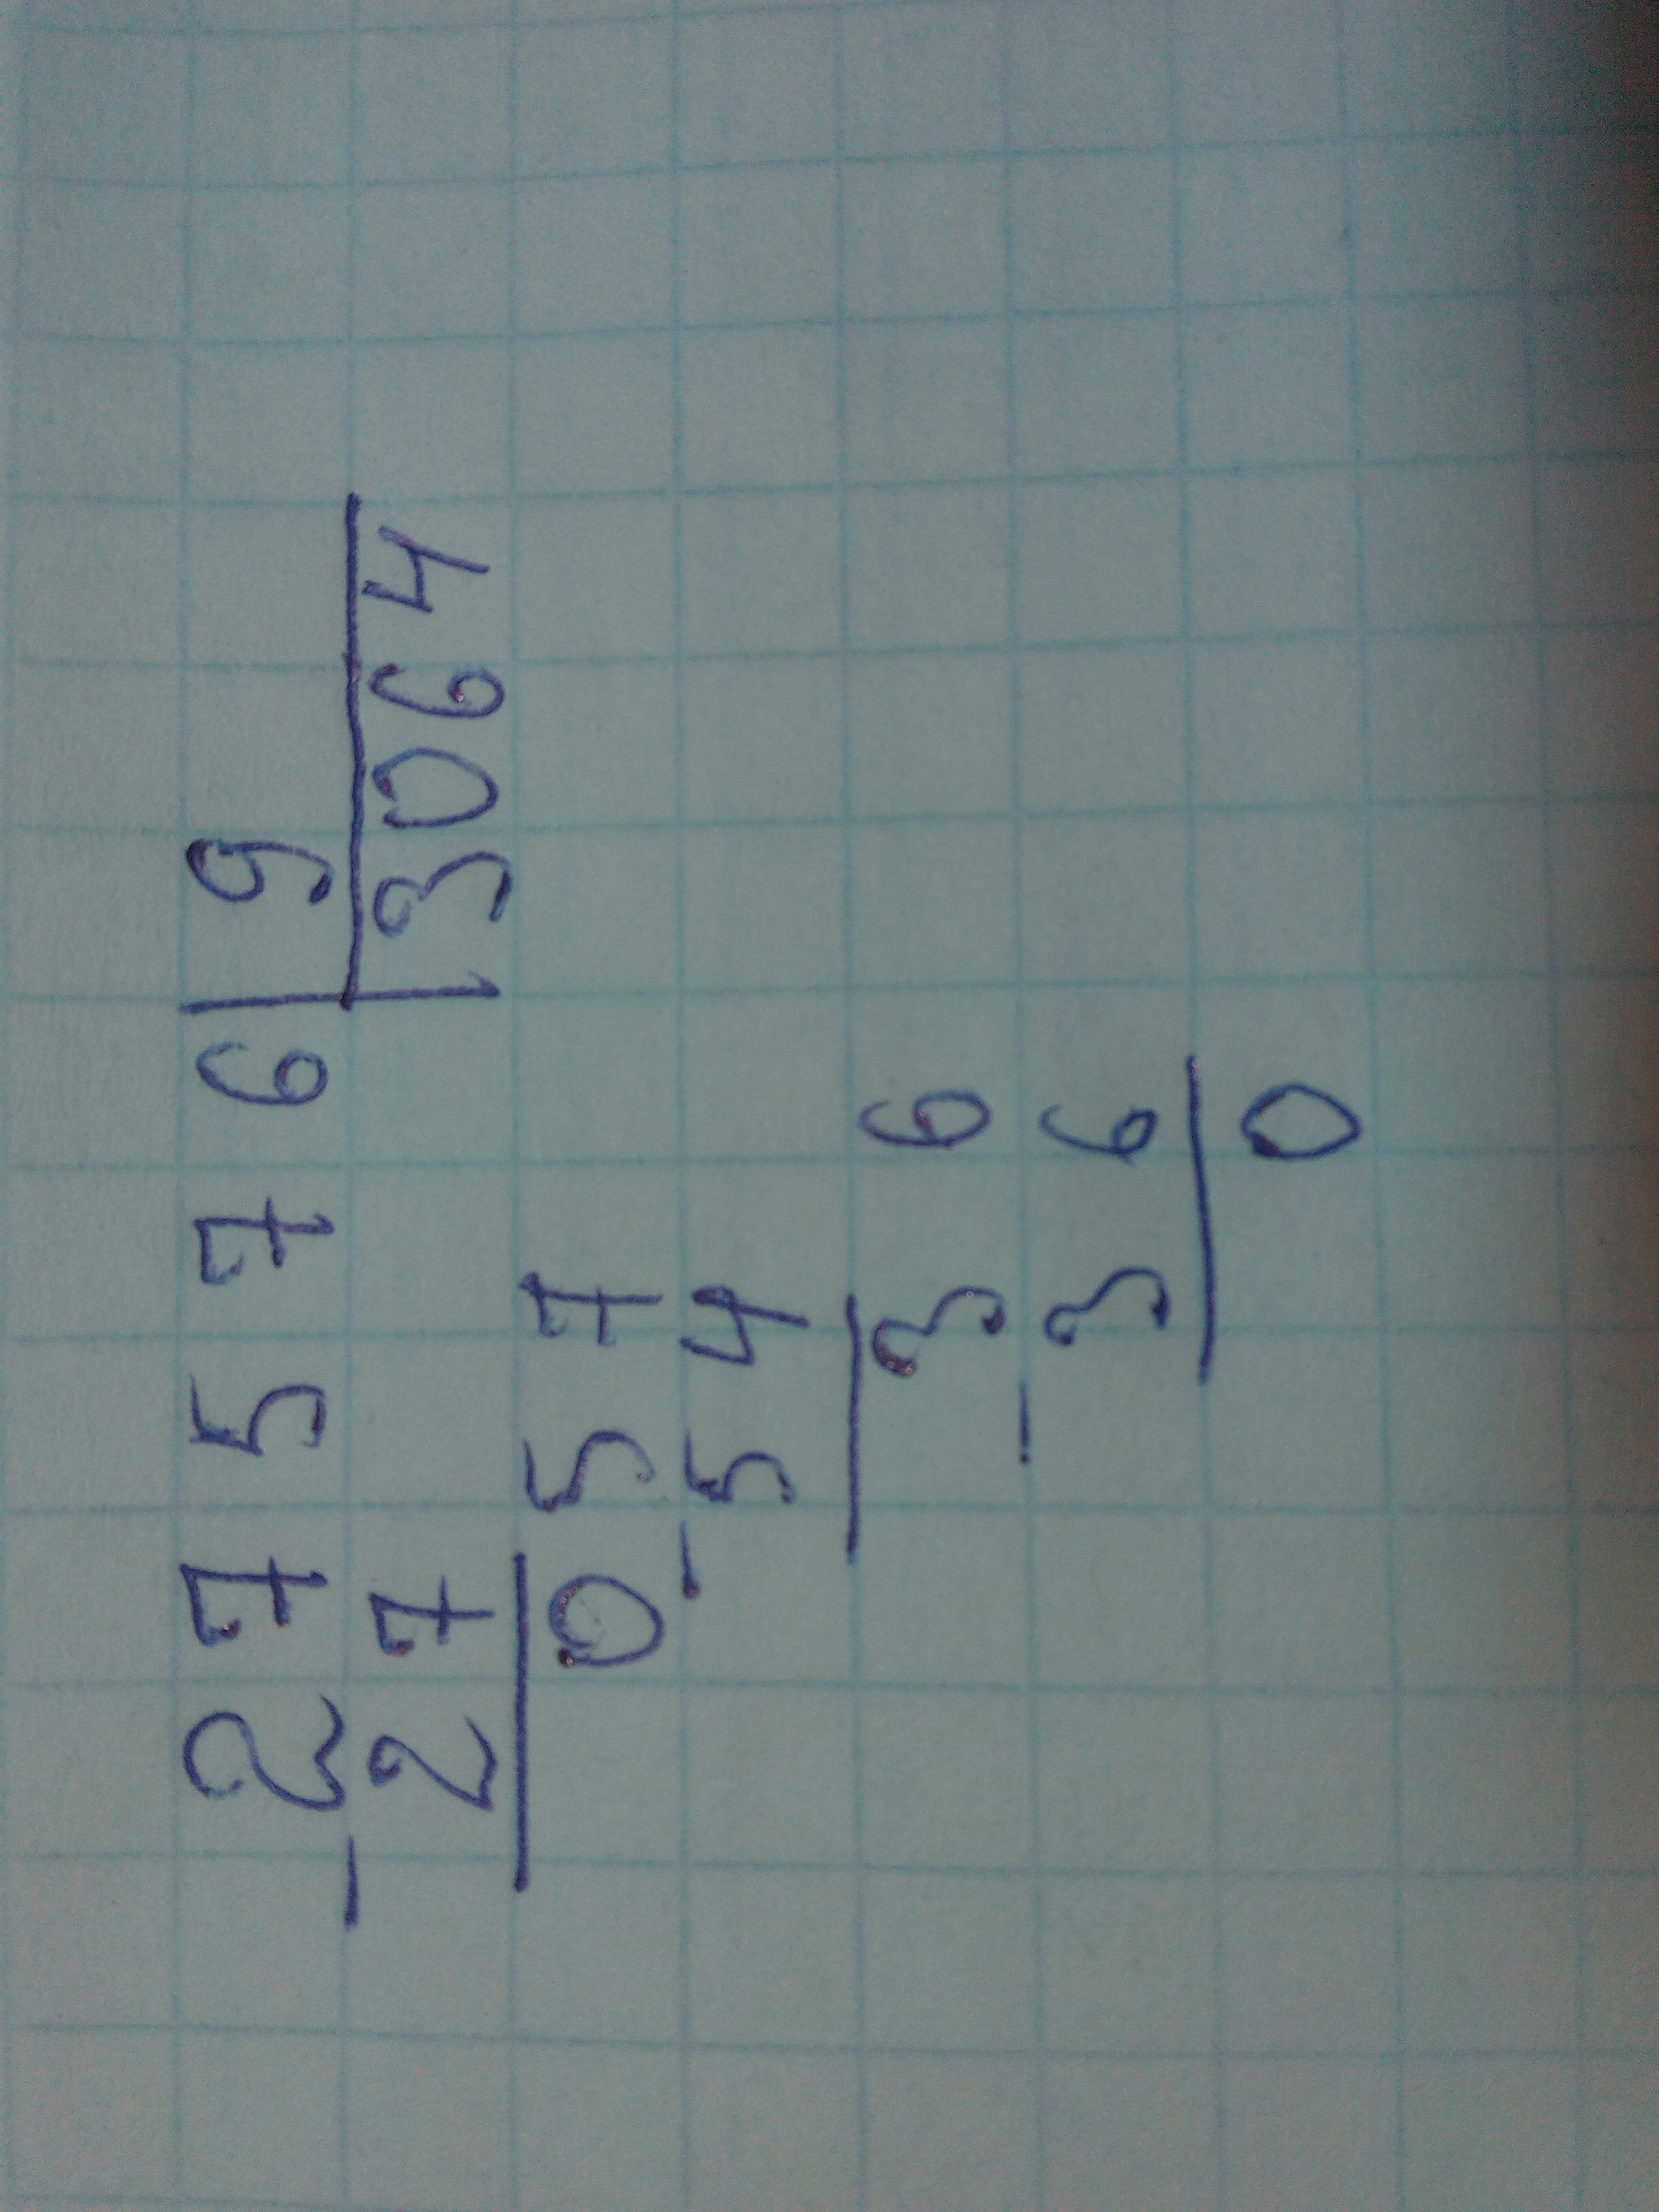 27576 9
27 3064
057
54
36
36
0